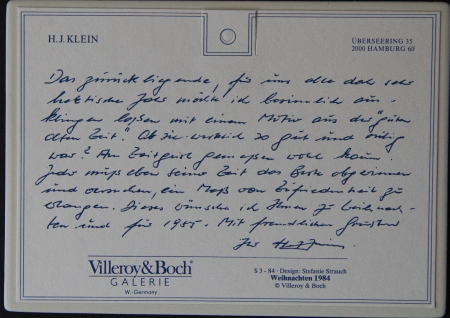 H.J. KLEIN
ÜBERSEERING 35
2000 HAMBURG 60
Das zurückliegende, für uns alle doch sehr
hektische Jahr möchte ich besinnlich aus-
klingen lassen mit einem Motiv aus der "guten
alten Zeit". Ob sie wirklich so gut und ruhig
war? Am Zeitgeist gemessen wohl kaum.
Jeder muß eben seiner Zeit das Beste abgewinnen
und versuchen, ein Maß von Zufriedenheit zu
erlangen. Dieses wünsche ich Ihnen zu Weihnach-
ten und für 1985. Mit freundlichen Grüßen
Ihr
Villeroy & Boch
GALERIE
W.-Germany
S 3 - 84 · Design: Stefanie Strauch
Weihnachten 1984
© Villeroy & Boch